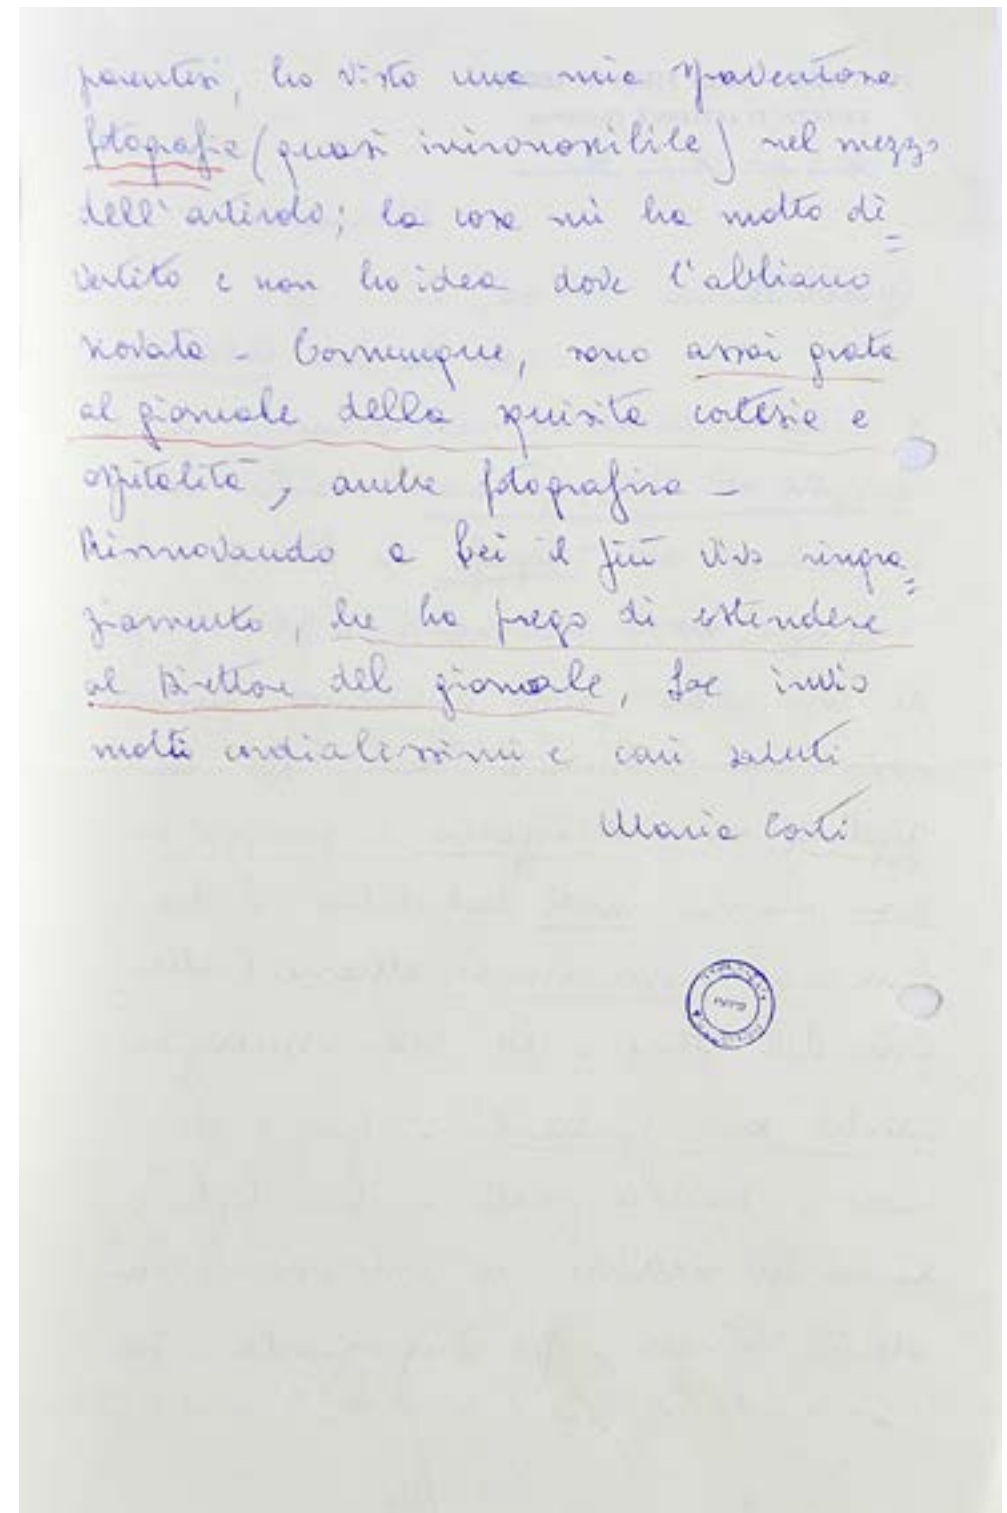 parentesi, ho visto una mia spaventosa
fotografia (quasi irriconoscibile) nel mezzo
dell'articolo; la cosa mi ha molto di=
vertito e non ho idea dove l'abbiano
scovata - Comunque, sono assai grata
al giornale della squisita cortesia e
ospitalità, anche fotografica -
Rinnovando a Lei il più vivo ringra=
ziamento, che La prego di estendere
al Direttore del giornale, Le invio
molti cordialissimi e cari saluti
Maria Corti